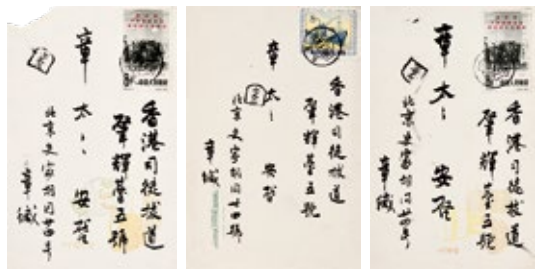 香港司徒拔道
肇輝臺五號
章太〻 安啓
北京史家胡同廿四号
章緘
香港司徒拔道
肇輝臺五號
章太〻 安啓
北京史家胡同廿四號
章緘
香港司徒拔道
肇輝臺五號
章太〻 安啓
北京史家胡同廿四号
章緘